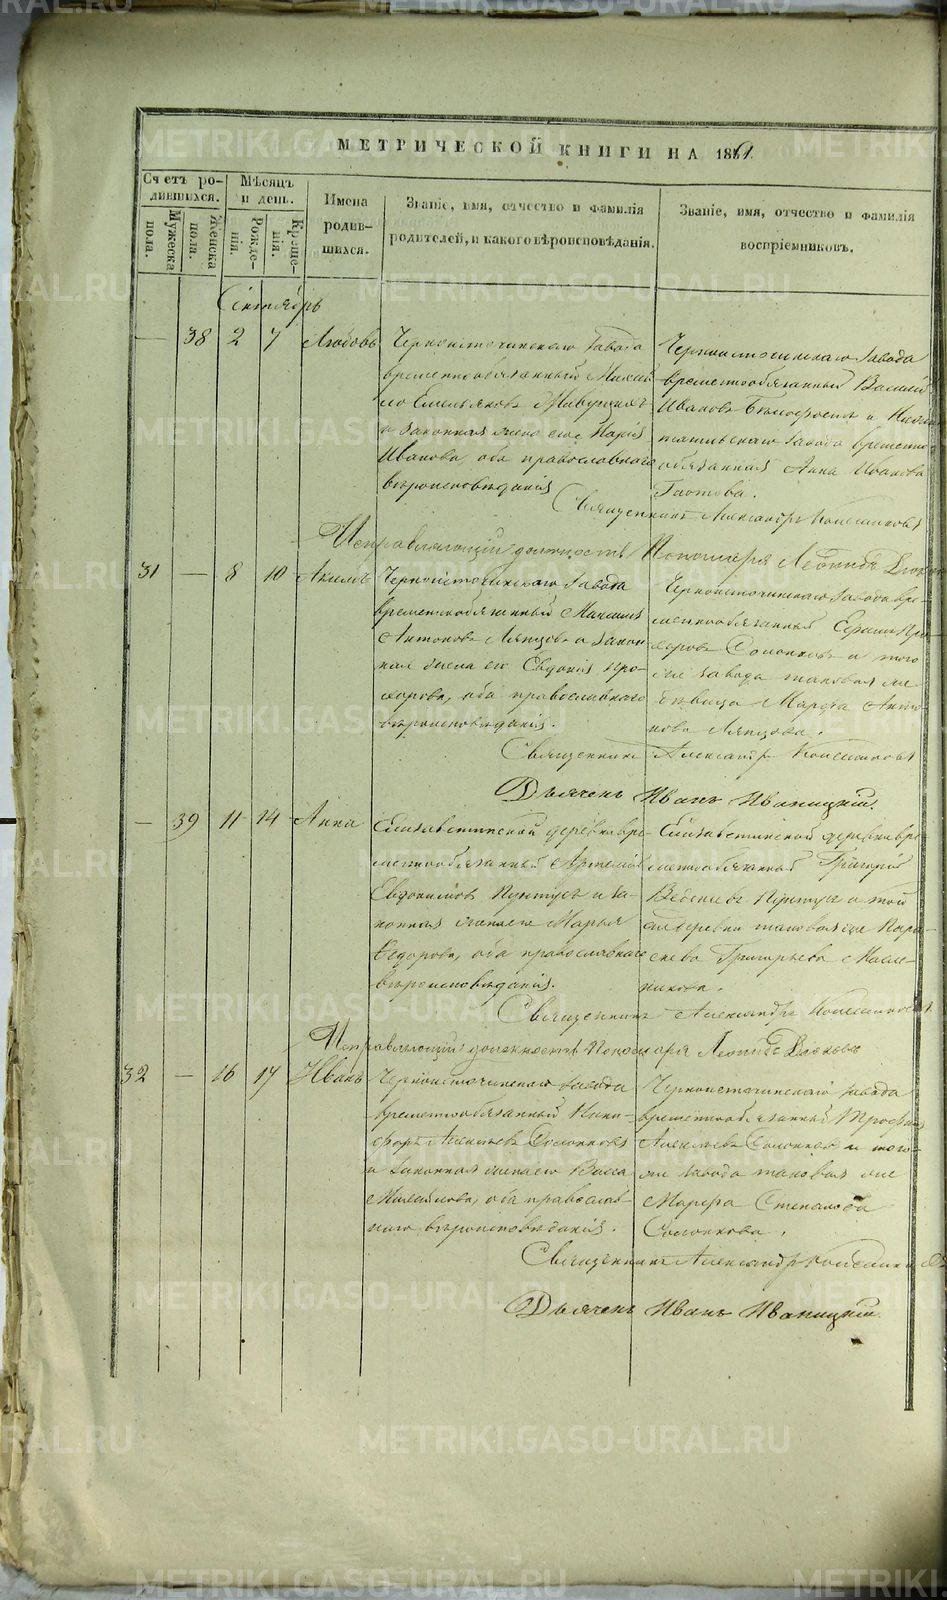 МЕТРИЧЕСКОЙ КНИГИ НА 1861.
Счетъ ро-
дившихся.
Мужеска
пола.
Женска
пола.
Мѣсяцъ
и день.
Рожде-
нія.
Креще-
нія.
Имена
родив-
шихся.
Званіе, имя, отчество и фамилія
родителей, и какого вѣроисповѣданія.
Званіе, имя, отчество и фамилія
воспріемниковъ.
Сентябрь
— 38 2 7 Любовь
Черноисточинскаго завода
временнообязанный Михай
ло Емельяновъ
и законная жена его Марія
Иванова, оба православнаго
вѣроисповѣданія
Черноисточинскаго завода
временнообязанный Василій
Ивановъ и Нижне
тагильскаго завода временно
обязанная Анна Иванова
Священникъ Александръ
Исправляющій должность Пономаря Леонидъ
31 — 8 10 Акимъ
Черноисточинскаго завода
временнообязанный Максимъ
Антоновъ Ляпцовъ и закон
ная жена его Евдокія Про-
хорова, оба православнаго
вѣроисповѣданія.
Черноисточинскаго завода вре-
меннообязанный Про-
хоровъ и того
же завода таковая же
дѣвица Марфа Анто
нова Ляпцова.
Священникъ Александръ
Дьячекъ Иванъ Иваницкій.
— 39 11 14 Анна
Елизаветинской деревни вре-
меннообязанный Артемій
Евдокимовъ и за-
конная жена его Марья
Федорова, оба православнаго
вѣроисповѣданія.
Елизаветинской деревни вре
меннообязанный Григорій
и той
же деревни таковая же Пара-
скева Григорьева Масле-
никова.
Священникъ Александръ
Исправляющій должность Пономаря Леонидъ
32 — 16 17 Иванъ
Черноисточинскаго завода
временнообязанный Ники-
форъ Алексѣевъ Солонковъ
и законная жена его Васса
Михайлова, оба православ
наго вѣроисповѣданія.
Черноисточинскаго завода
временнообязанный Трофимъ
Алексѣевъ и того-
же завода таковая же
Марфа Степанова
Солонкова.
Священникъ Александръ
Дьячекъ Иванъ Иваницкій.
METRIKI.GASO-URAL.RU